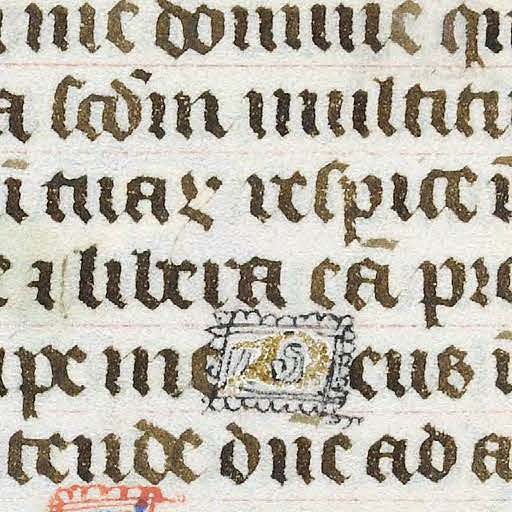 i me domine qu
a scdm multitu
ū tuaꝝ respice ī
e ⁊ libera eā pro
ipe me Deus ī
tende dne ad a